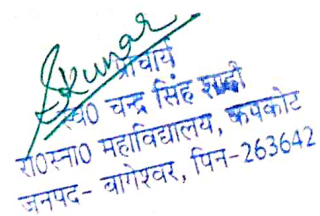 Skumar
प्राचार्य
स्व0 चन्द्र सिंह शाही
रा0स्ना0 महाविद्यालय, कपकोट
जनपद- बागेश्वर, पिन-263642